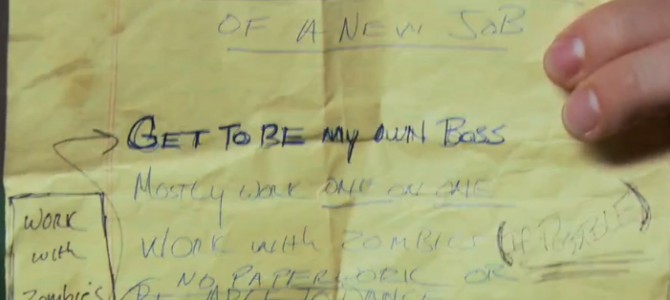 OF A NEW JOB
GET TO BE MY OWN BOSS
MOSTLY WORK ONE ON ONE
WORK WITH ZOMBIES (IF POSSIBLE)
NO PAPERWORK OR
BE ABLE TO DANCE
WORK
with
Zombie's